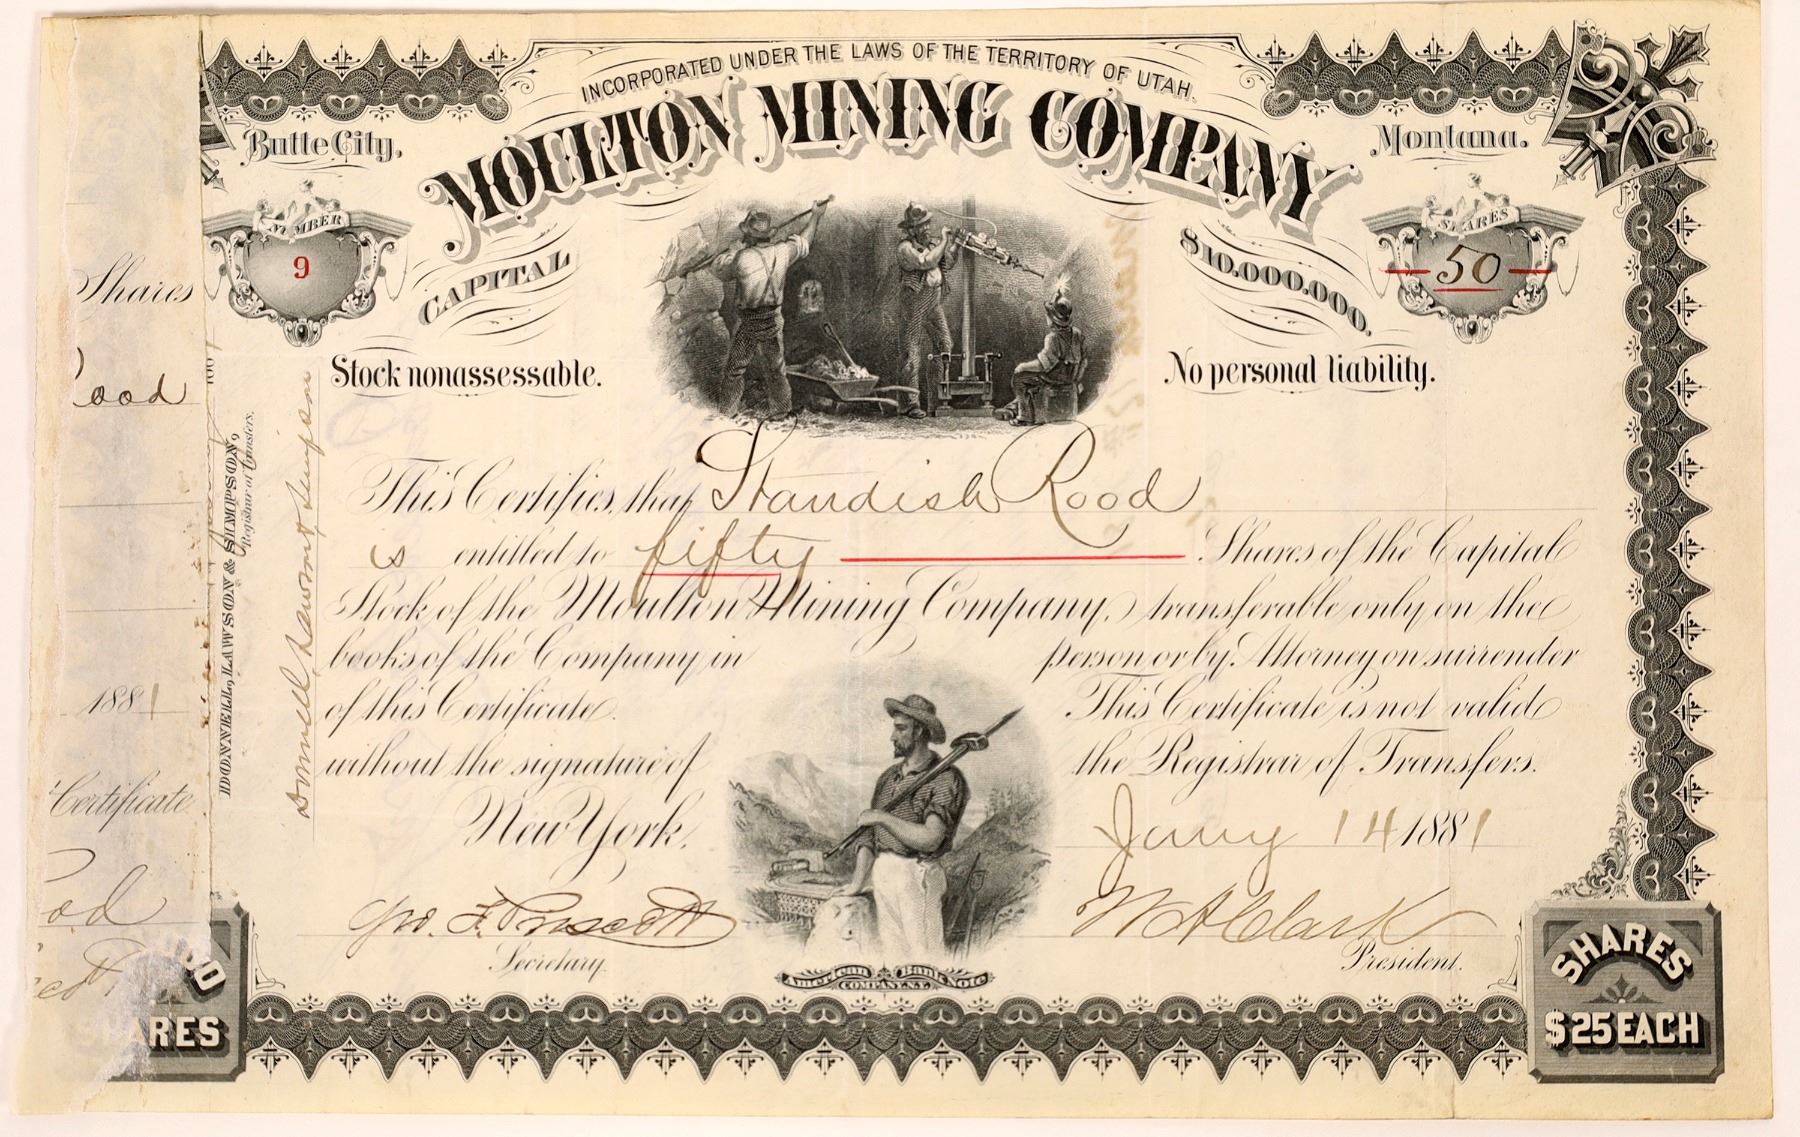 INCORPORATED UNDER THE LAWS OF THE TERRITORY OF UTAH.
Butte City,
MOULTON MINING COMPANY
Montana.
NUMBER
9
SHARES
50
CAPITAL
$10.000.000.
Stock nonassessable.
No personal liability.
This Certifies, that Standish Rood
is entitled to fifty Shares of the Capital
Stock of the Moulton Mining Company, transferable only on the
books of the Company in person or by Attorney on surrender
of this Certificate. This Certificate is not valid
without the signature of the Registrar of Transfers.
New York, Jany 14 1881
Geo. F. Prescott
W A Clark
Secretary.
President.
American Bank Note
COMPANY N.Y.
SHARES
$25 EACH
SHARES
DONNELL, LAWSON & SIMPSON,
Registrar of Transfers.
Donnell Lawson & Simpson
Shares
ood
1881
Certificate
od